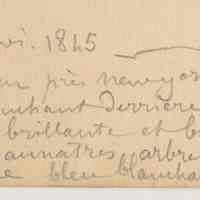 vi. 1845
près newyor
chant derrière
brillante et b
aunatres arbre
e bleu blancha